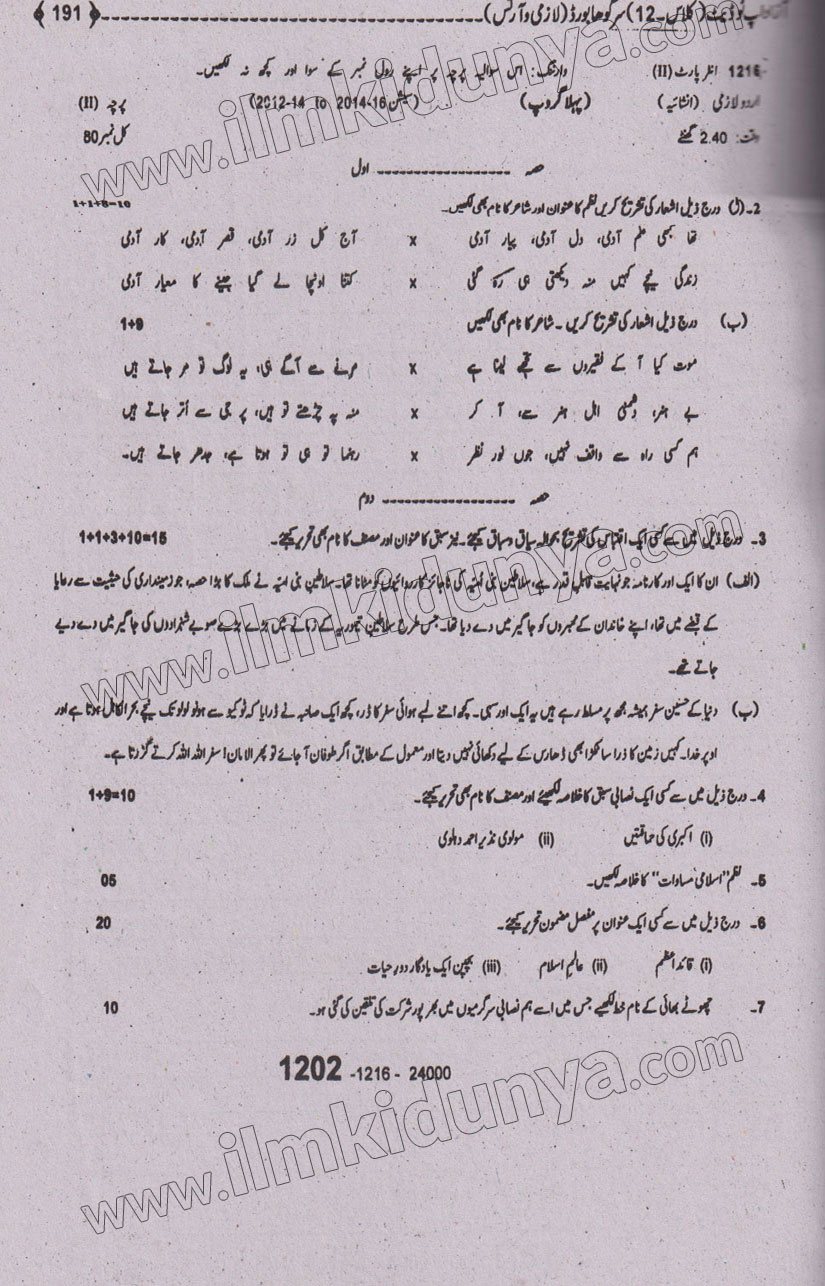 اپ ٹو ڈیٹ (کلاس۔12) سرگودھا بورڈ (لازمی و آرٹس) ﴿191﴾
1216 انٹر پارٹ (II) وارننگ: اس سوالیہ پرچہ پر اپنے رول نمبر کے سوا اور کچھ نہ لکھیں۔
اردو لازمی (انشائیہ) (پہلا گروپ) (سیشن 2012-14 to 2014-16) پرچہ (II)
وقت: 2.40 گھنٹے کل نمبر 80
حصہ ------------------ اول
2۔ (ا) درج ذیل اشعار کی تشریح کریں نظم کا عنوان اور شاعر کا نام بھی لکھیں۔ 1+1+8=10
تھا کبھی علم آدمی، دل آدمی، پیار آدمی x آج کل زر آدمی، قصر آدمی، کار آدمی
زندگی نیچے کہیں منہ دیکھتی ہی رہ گئی x کتنا اونچا لے گیا جینے کا معیار آدمی
(ب) درج ذیل اشعار کی تشریح کریں۔ شاعر کا نام بھی لکھیں 1+9
موت کیا آ کے فقیروں سے تجھے لینا ہے x مرنے سے آگے ہی، یہ لوگ تو مر جاتے ہیں
بے ہنر، دشمنی اہل ہنر سے، آ کر x منہ پہ چڑھتے تو ہیں، پر جی سے اُتر جاتے ہیں
ہم کسی راہ سے واقف نہیں، جوں نور نظر x رہنما تو ہی تو ہوتا ہے، جدھر جاتے ہیں۔
حصہ ------------------ دوم
3۔ درج ذیل میں سے کسی ایک اقتباس کی تشریح بحوالہ سیاق و سباق کیجئے۔ نیز سبق کا عنوان اور مصنف کا نام بھی تحریر کیجئے۔ 1+1+3+10=15
(الف) ان کا ایک اور کارنامہ جو نہایت قابلِ قدر ہے، سلاطین بنی اُمیہ کی ناجائز کارروائیوں کو مٹانا تھا۔ سلاطین بنی امیہ نے ملک کا بڑا حصہ، جو زمینداری کی حیثیت سے رعایا
کے قبضے میں تھا، اپنے خاندان کے ممبروں کو جاگیر میں دے دیا تھا۔ جس طرح سلاطین تیموریہ کے زمانے میں بڑے بڑے صوبے شہزادوں کی جاگیر میں دے دیے
جاتے تھے۔
(ب) دنیا کے حسین سفر ہمیشہ مجھ پر مسلط رہے ہیں یہ ایک اور سہی۔ کچھ اتنے لمبے ہوائی سفر کا ڈر، کچھ ایک صاحب نے ڈرایا کہ ٹوکیو سے ہونولولو تک نیچے بحرالکاہل ہوتا ہے اور
اوپر خدا۔ کہیں زمین کا ذرا سا ٹکڑا بھی ڈھارس کے لیے دکھائی نہیں دیتا اور معمول کے مطابق اگر طوفان آ جائے تو پھر الامان! سفر اللہ اللہ کرتے گزرتا ہے۔
4۔ درج ذیل میں سے کسی ایک نصابی سبق کا خلاصہ لکھیئے اور مصنف کا نام بھی تحریر کیجئے۔ 1+9=10
(i) اکبری کی حماقتیں (ii) مولوی نذیر احمد دہلوی
5۔ نظم "اسلامی مساوات" کا خلاصہ لکھیں۔ 05
6۔ درج ذیل میں سے کسی ایک عنوان پر مفصل مضمون تحریر کیجئے۔ 20
(i) قائداعظم (ii) عالمِ اسلام (iii) بچپن ایک یادگار دورِ حیات
7۔ چھوٹے بھائی کے نام خط لکھیے جس میں اسے ہم نصابی سرگرمیوں میں بھرپور شرکت کی تلقین کی گئی ہو۔ 10
1202 -1216 - 24000
www.ilmkidunya.com
www.ilmkidunya.com
www.ilmkidunya.com